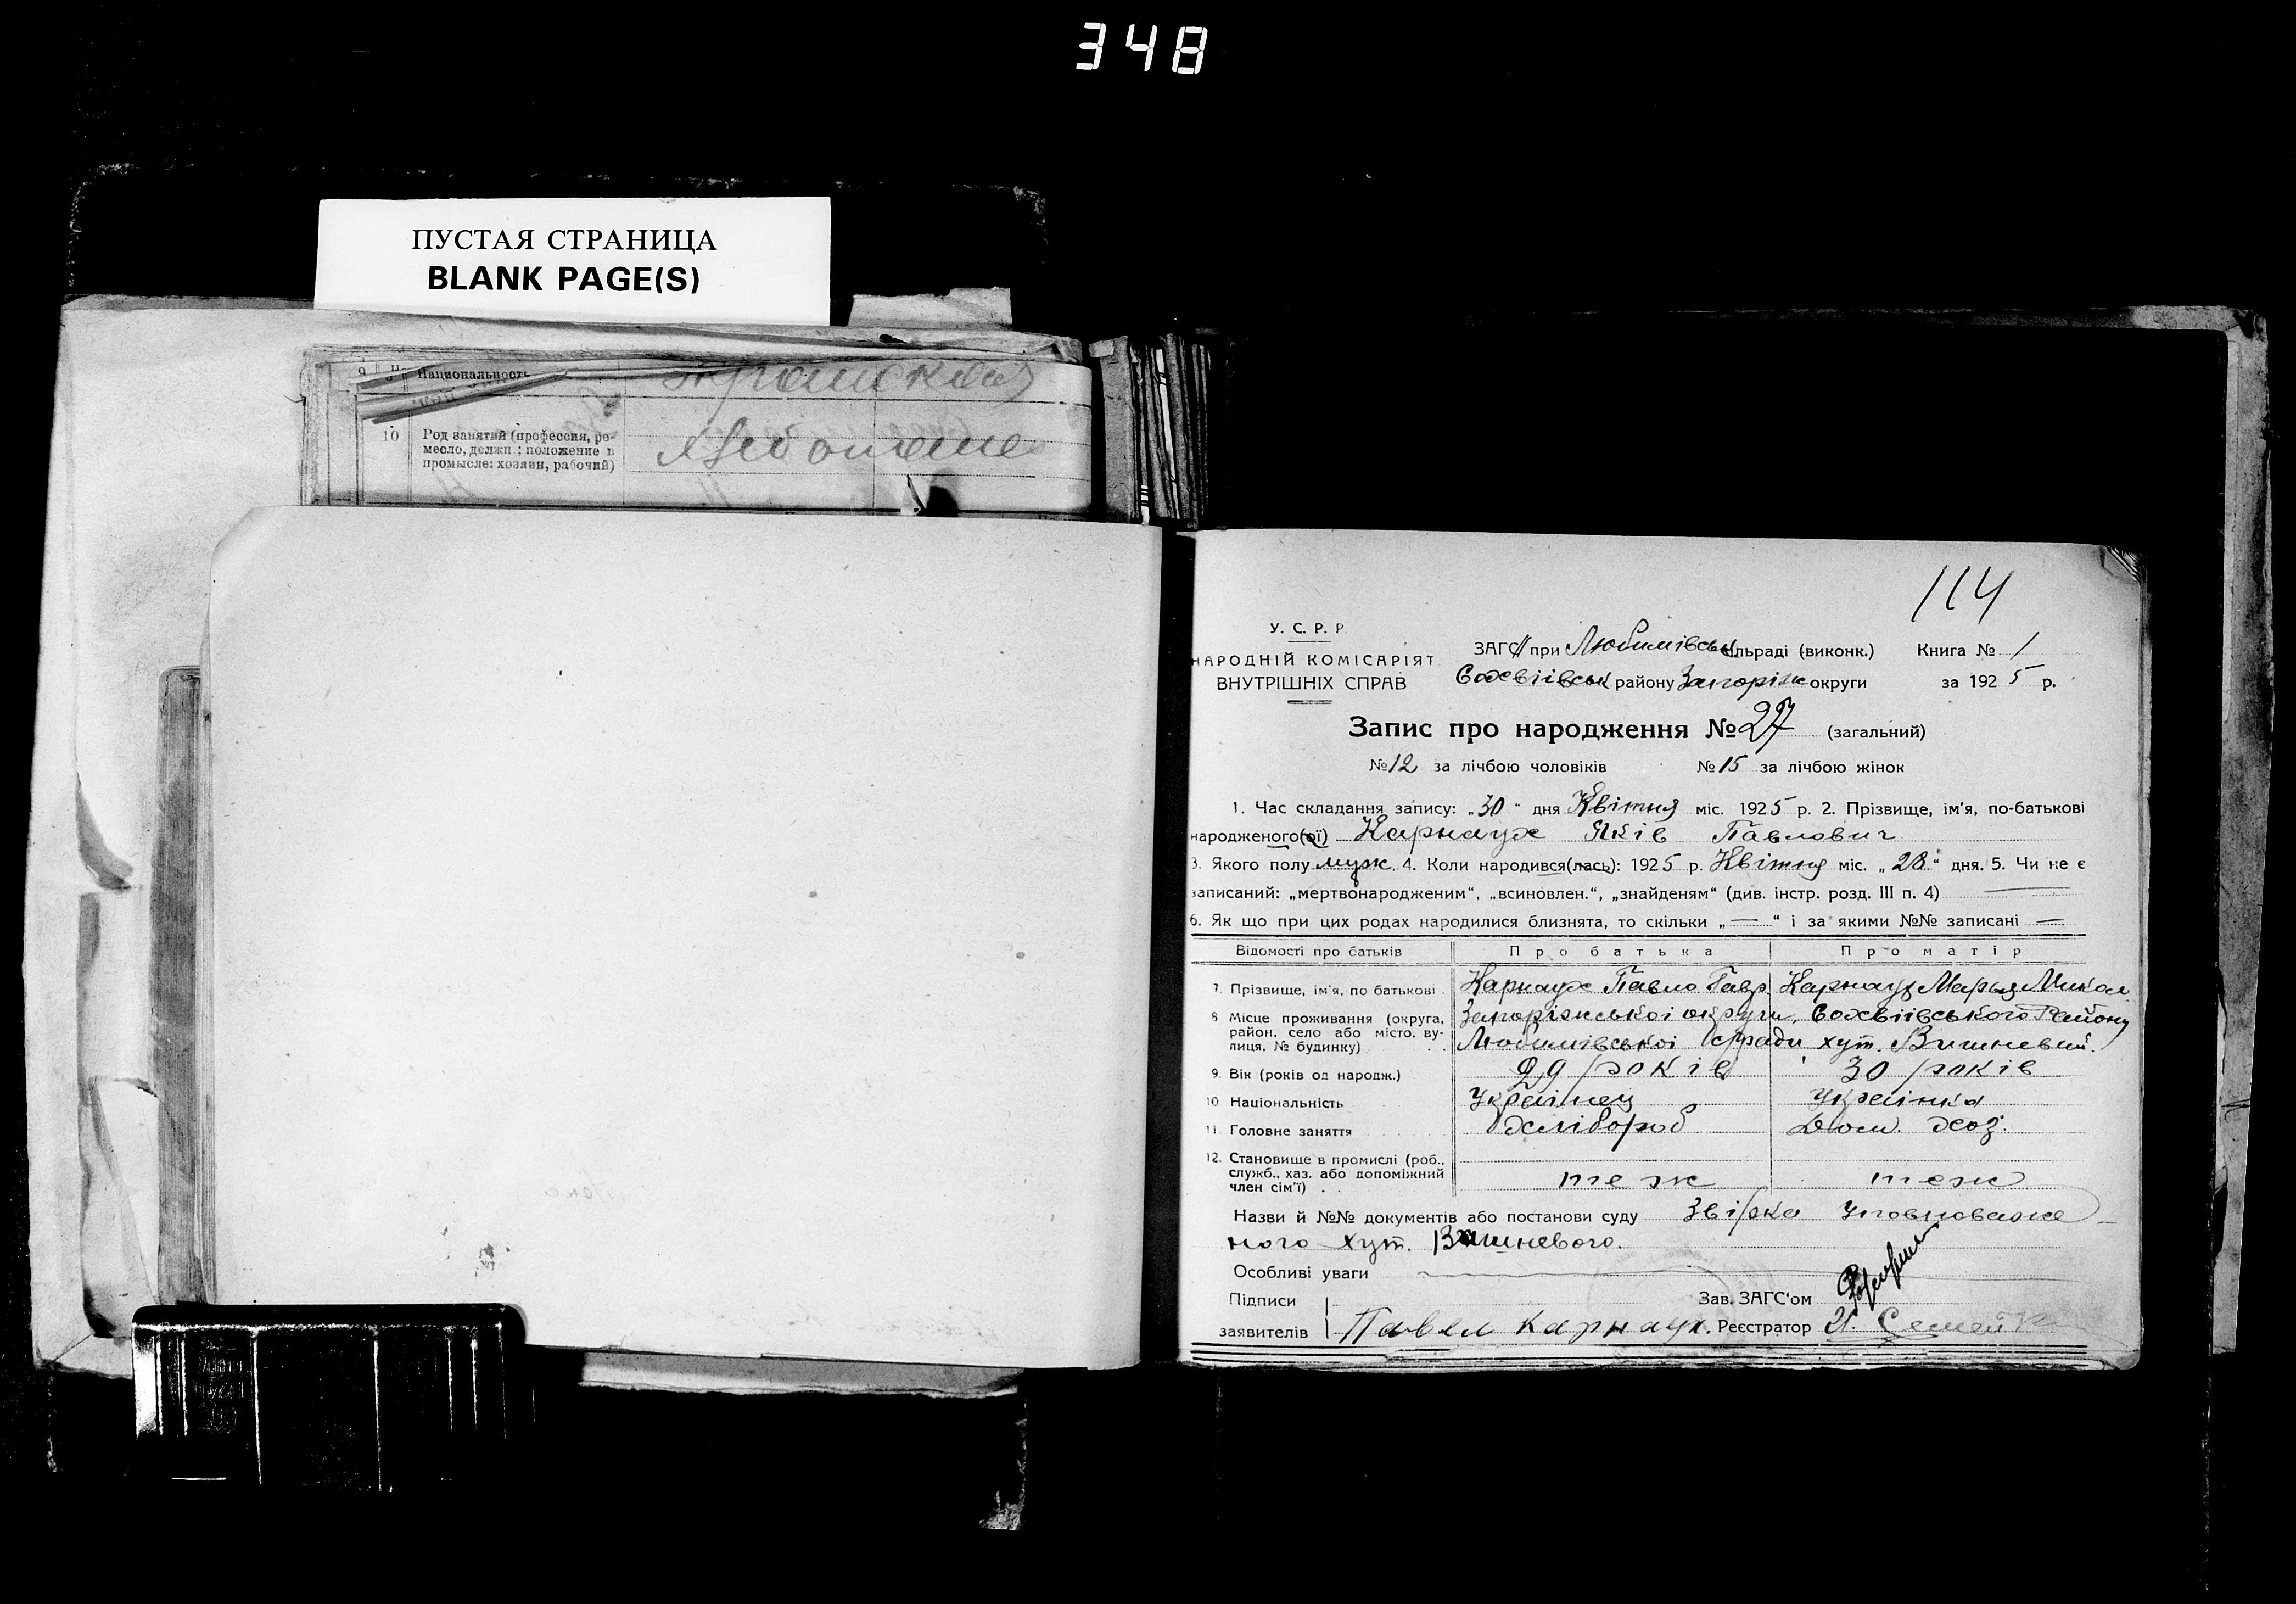 348
ПУСТАЯ СТРАНИЦА
BLANK PAGE(S)
9 Национальность
10 Род занятий (профессия, ре-
месло, должн.; положение в
промысле: хозяин, рабочий)
114
У. С. Р. Р
НАРОДНІЙ КОМІСАРІЯТ
ВНУТРІШНІХ СПРАВ
ЗАГС при Любимівськ сільраді (виконк.) Книга № 1
району Запоріж округи за 1925 р.
Запис про народження № 27 (загальний)
№ 12 за лічбою чоловіків № 15 за лічбою жінок
1. Час складання запису: „30“ дня Квітня міс. 1925 р. 2. Прізвище, ім'я, по-батькові
народженого(ої) Карнаух Яків Павлович
3. Якого полу муж. 4. Коли народився(лась): 1925 р. Квітня міс. „28“ дня. 5. Чи не є
записаний: „мертвонародженим“, „всиновлен.“, „знайденям“ (див. інстр. розд. III п. 4) —
6. Як що при цих родах народилися близнята, то скільки „—“ і за якими №№ записані —
Відомості про батьків Про батька Про матір
7. Прізвище, ім'я, по батькові Карнаух Павло Гавр. Карнаух Марья Микол
8 Місце проживання (округа, район, село або місто, вулиця, № будинку) Запоріжської округи, Софвіївського Району
Любимівської с/ради хут. Вишневий.
9. Вік (років од народж.) 29 років 30 років
10 Національність Українец Українка
11. Головне заняття хлібороб Дом. хоз.
12. Становище в промислі (роб., служб., хаз. або допоміжний член сім'ї) теж теж
Назви й №№ документів або постанови суду Звірка Уповноваже-
ного хут. Вишневого.
Особливі уваги
Підписи Зав. ЗАГС'ом
заявителів Павел Карнаух. Реєстратор